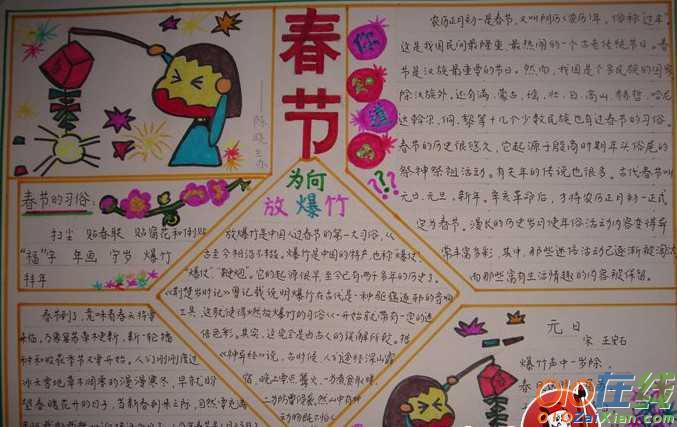 春节
你
知
道
???
——陈晓兰办
农历正月初一是春节,又叫阴历(农历)年,俗称“过年”。
这是我国民间最隆重、最热闹的一个古老传统节日。春
节是汉族最重要的节日。然而,我国是个多民族的国家
除汉族外,还有满、蒙古、瑶、壮、白、高山、赫哲、哈尼
达斡尔、侗、黎等十几个少数民族也有过春节的习俗。
春节的历史很悠久,它起源于殷商时期年头俗尾的
祭神祭祖活动。有关年的传说也很多。古代春节叫
元日、元旦、新年。辛亥革命后,才将农历正月初一正式
定为春节。漫长的历史岁月使年俗活动内容变得异
常丰富多彩,其中,那些迷信活动已逐渐被淘汰
而那些富有生活情趣的内容被保留。
春节的习俗:
扫尘 贴春联 贴窗花和倒贴
“福”字 年画 守岁 爆竹
拜年
为何
放爆竹
放爆竹是中国人过春节的第一大习俗,从
古至今相沿不辍。爆竹是中国的特产,也称“爆仗”、
“炮仗”、“鞭炮”。它的起源很早,至今已有两千多年的历史了。
《荆楚岁时记》曾记载说明爆竹在古代是一种驱瘟逐邪的音响
工具,这就使得燃放爆竹的习俗从一开始就带有一定的迷
信色彩。其实,这完全是由古人的误解所致。据
《神异经》说,古时候,人们途经深山露
宿,晚上要点篝火,一为煮食取暖,
二为防
春节到了,意味着春天将要
来临,万象复苏草木更新,新一轮播
种和收获季节又要开始。人们刚刚度过
冰天雪地草木凋零的漫漫寒冬,早就盼
望春暖花开的日子,当新春到来之际,自然要充满
元日
宋 王安石
爆竹声中一岁除,
春
QQ在线
QQZaiXian.Com